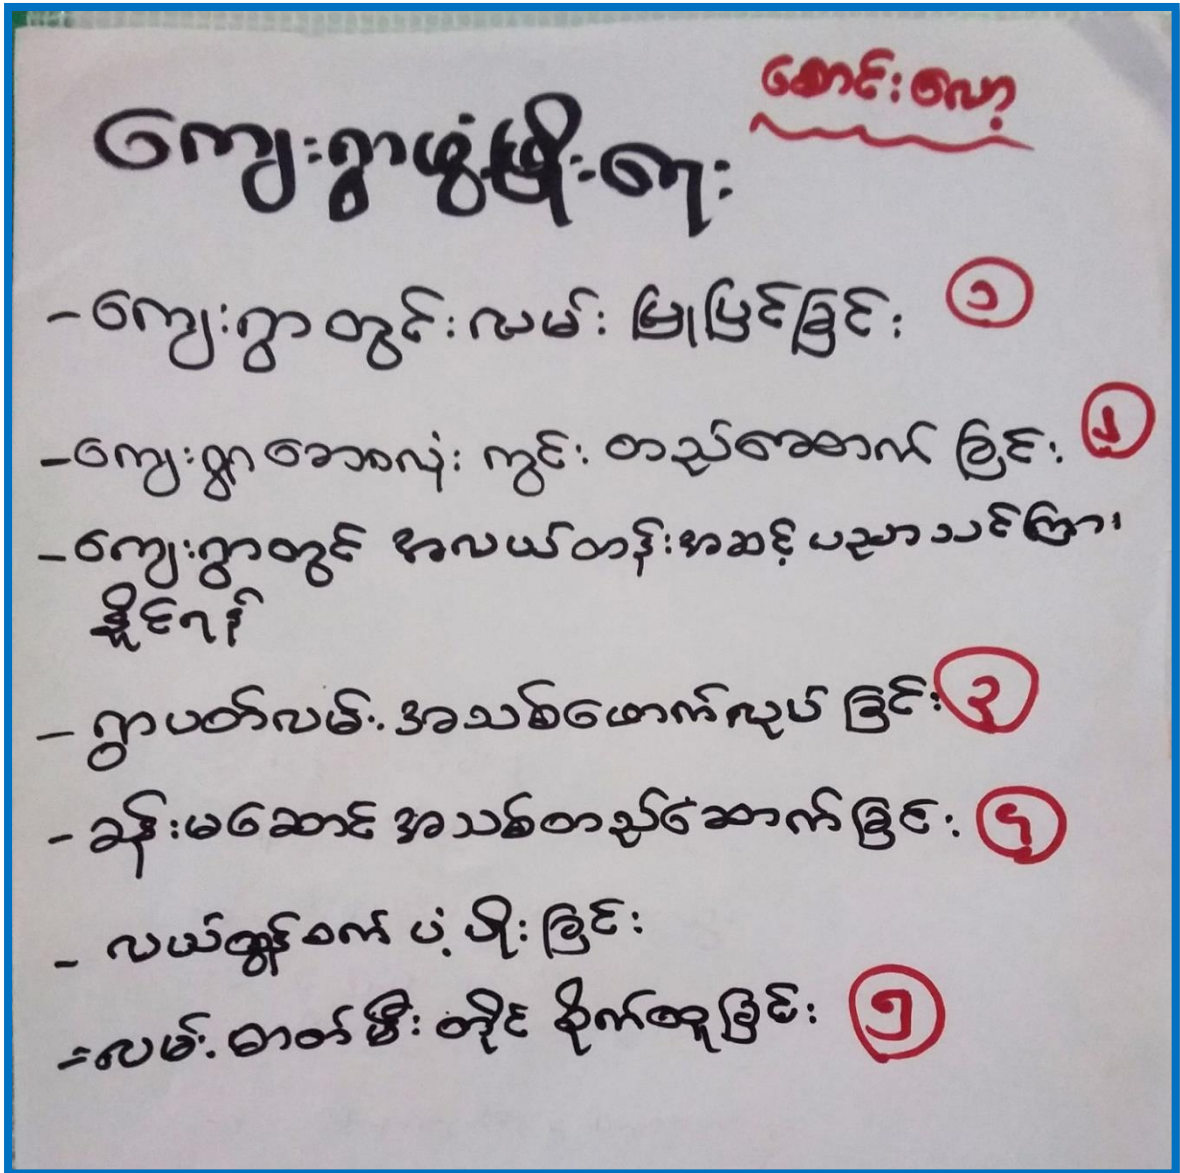 ဆောင်းလော့
ကျေးရွာဖွံ့ဖြိုးရေး
- ကျေးရွာတွင်းလမ်း ပြုပြင်ခြင်း ၁
- ကျေးရွာ ဘောလုံး ကွင်း တည်ဆောက် ခြင်း ၂
- ကျေးရွာတွင် အလယ်တန်းအဆင့် ပညာသင်ကြား
နိုင်ရန်
- ရွာပတ်လမ်း အသစ်ဖောက်လုပ် ခြင်း ၃
- ခန်းမဆောင် အသစ်တည်ဆောက် ခြင်း ၄
- လယ်ထွန်စက် ပံ့ပိုး ခြင်း
- လမ်း ဓာတ်မီး တိုင် စိုက်ထူခြင်း ၅